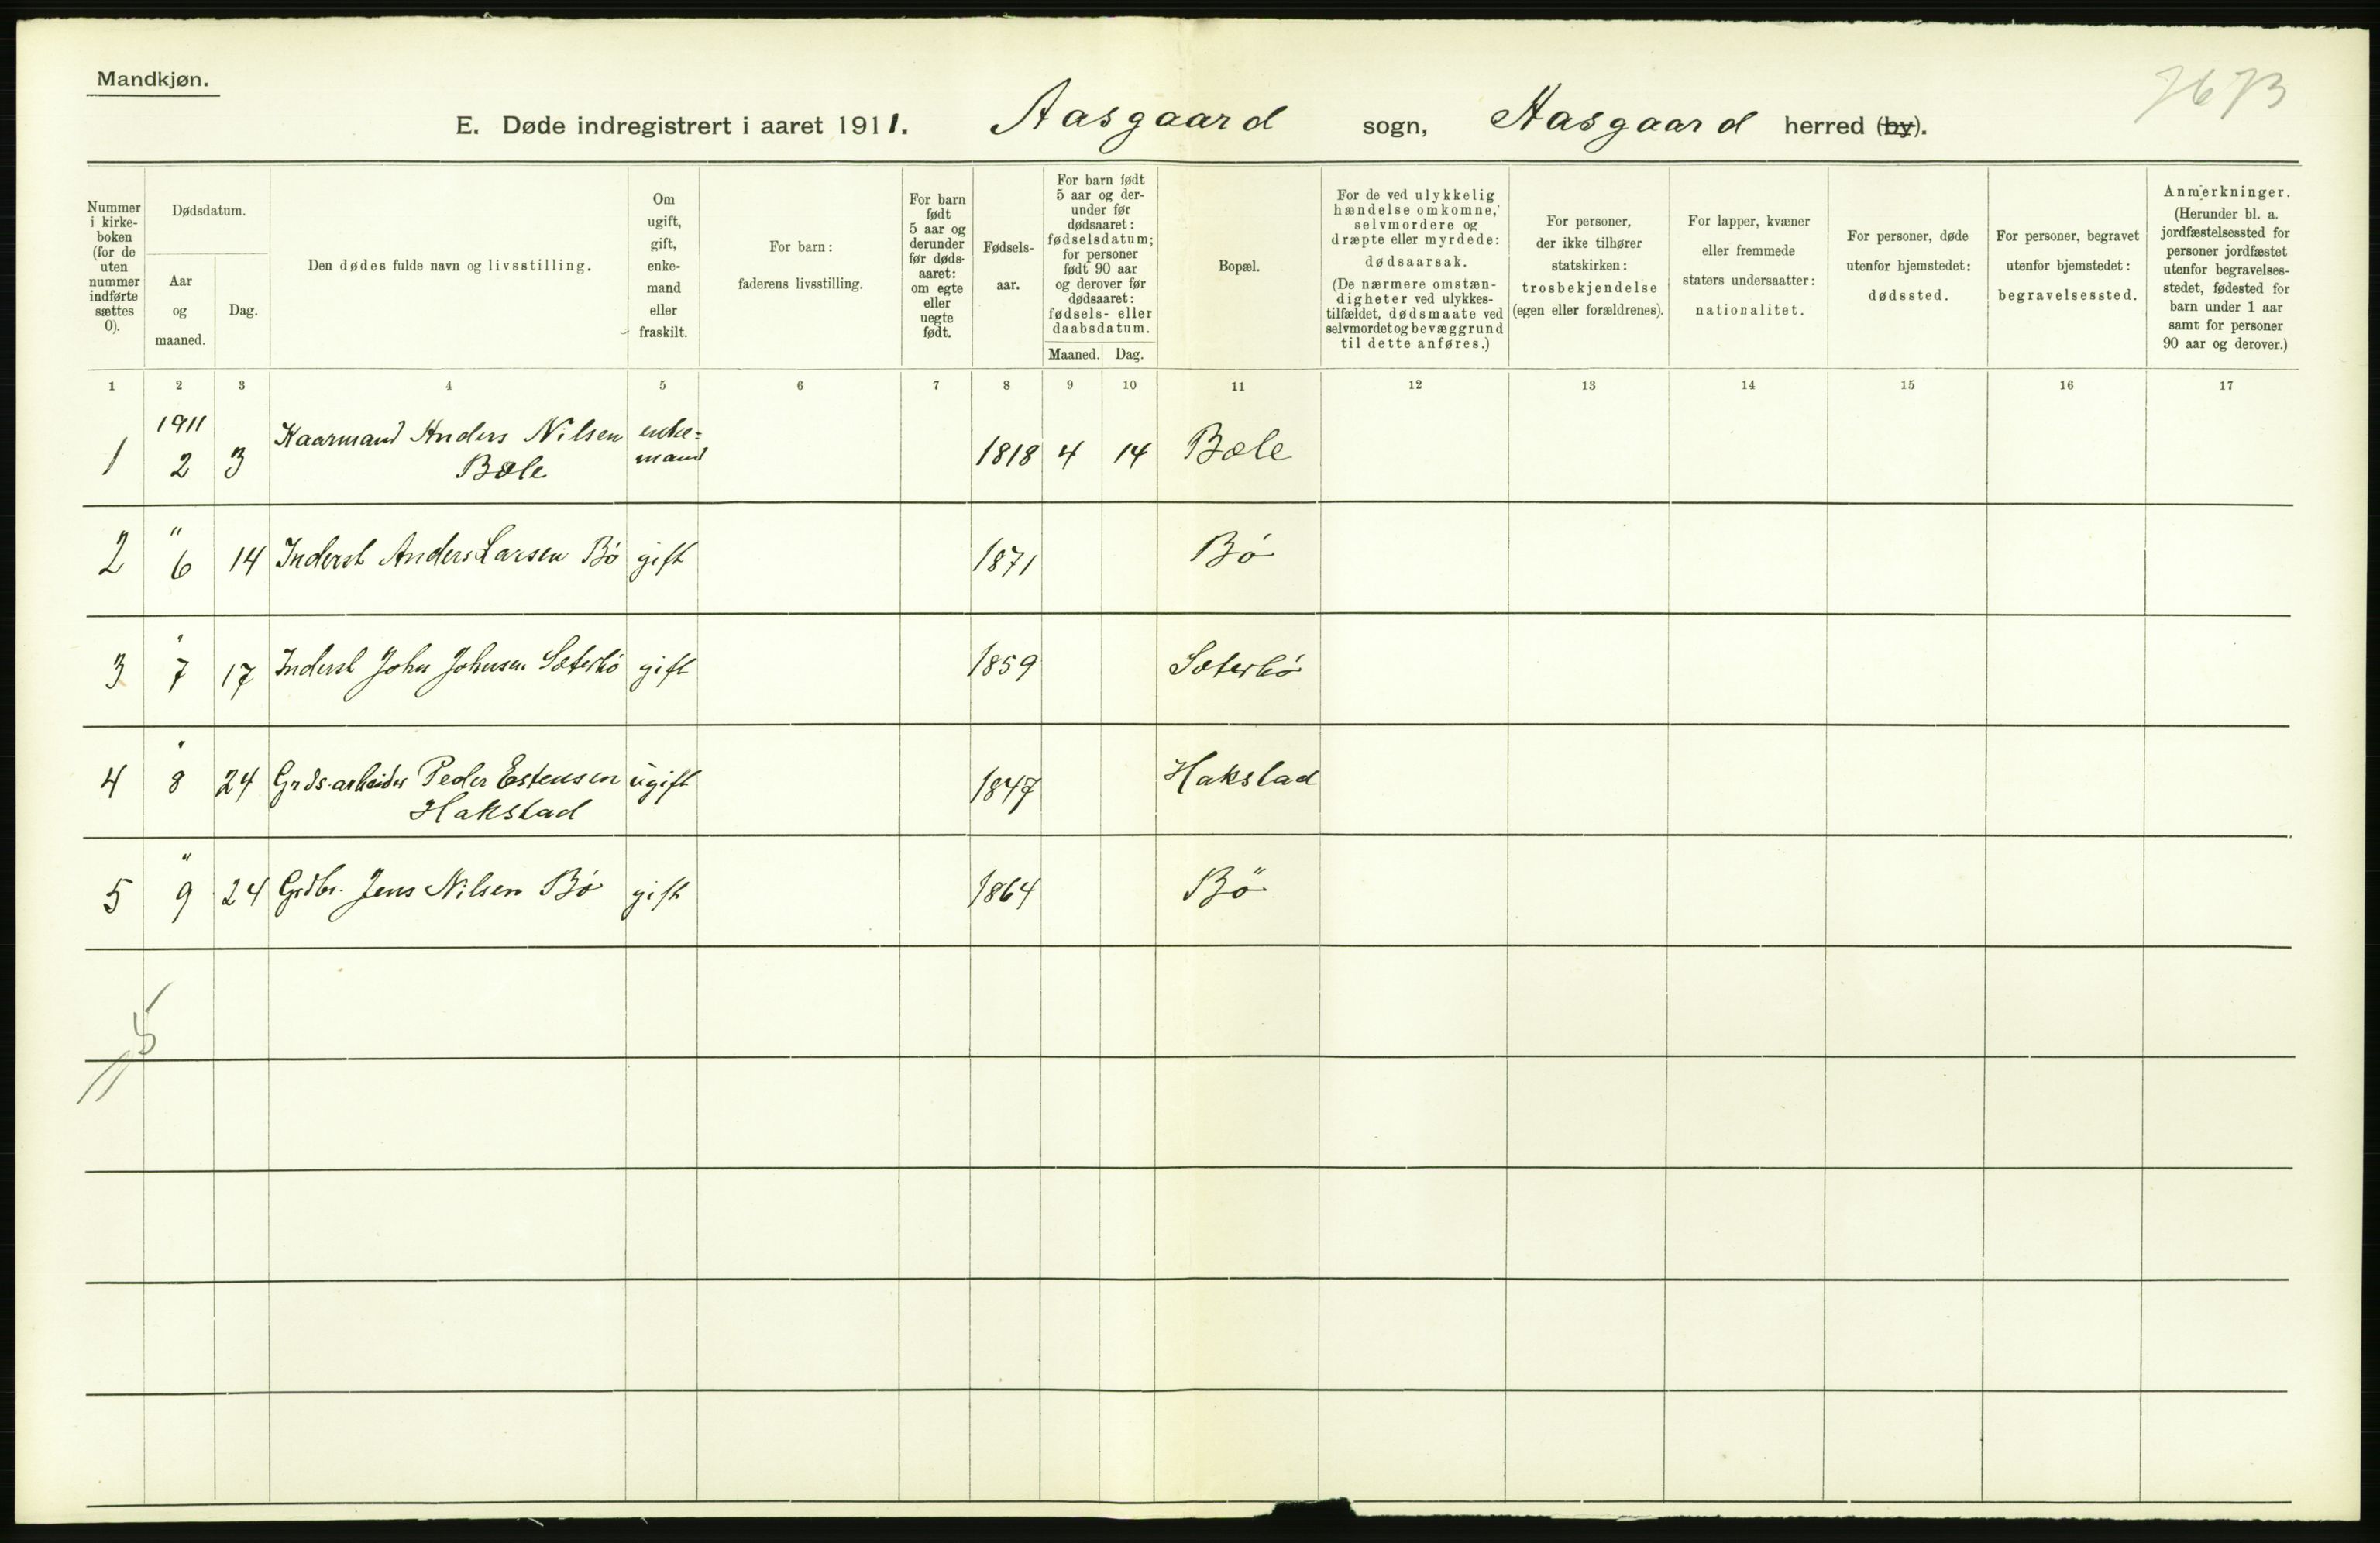 Mandkjøn.
7673
E. Døde indregistrert i aaret 1911. Aasgaard sogn, Aasgaard herred (by).
Nummer
i kirke-
boken
(for de
uten
nummer
indførte
sættes
0).
Dødsdatum.
Aar
og
maaned.
Dag.
Den dødes fulde navn og livsstilling.
Om
ugift,
gift,
enke-
mand
eller
fraskilt.
For barn:
faderens livsstilling.
For barn
født
5 aar og
derunder
før døds-
aaret:
om egte
eller
uegte
født.
Fødsels-
aar.
For barn født
5 aar og der-
under før
dødsaaret:
fødselsdatum;
for personer
født 90 aar
og derover før
dødsaaret:
fødsels- eller
daabsdatum.
Maaned. Dag.
Bopæl.
For de ved ulykkelig
hændelse omkomne,
selvmordere og
dræpte eller myrdede:
dødsaarsak.
(De nærmere omstæn-
digheter ved ulykkes-
tilfældet, dødsmaate ved
selvmordet og bevæggrund
til dette anføres.)
For personer,
der ikke tilhører
statskirken:
trosbekjendelse
(egen eller forældrenes).
For lapper, kvæner
eller fremmede
staters undersaatter:
nationalitet.
For personer, døde
utenfor hjemstedet:
dødssted.
For personer, begravet
utenfor hjemstedet:
begravelsessted.
Anmerkninger.
(Herunder bl. a.
jordfæstelsessted for
personer jordfæstet
utenfor begravelses-
stedet, fødested for
barn under 1 aar
samt for personer
90 aar og derover.)
1 2 3 4 5 6 7 8 9 10 11 12 13 14 15 16 17
1911
1 2 3 Kaarmand Anders Nilsen enke= 1818 4 14 Bøle
Bøle mand
"
2 6 14 Inderst Anders Larsen Bö gift 1871 Bö
"
3 7 17 Inderst John Johnsen Sæterbö gift 1859 Sæterbö
"
4 8 24 Grds.arbeider Peder Estensen ugift 1847 Hakstad
Hakstad
"
5 9 24 Grdbr. Jens Nilsen Bö gift 1864 Bö
5